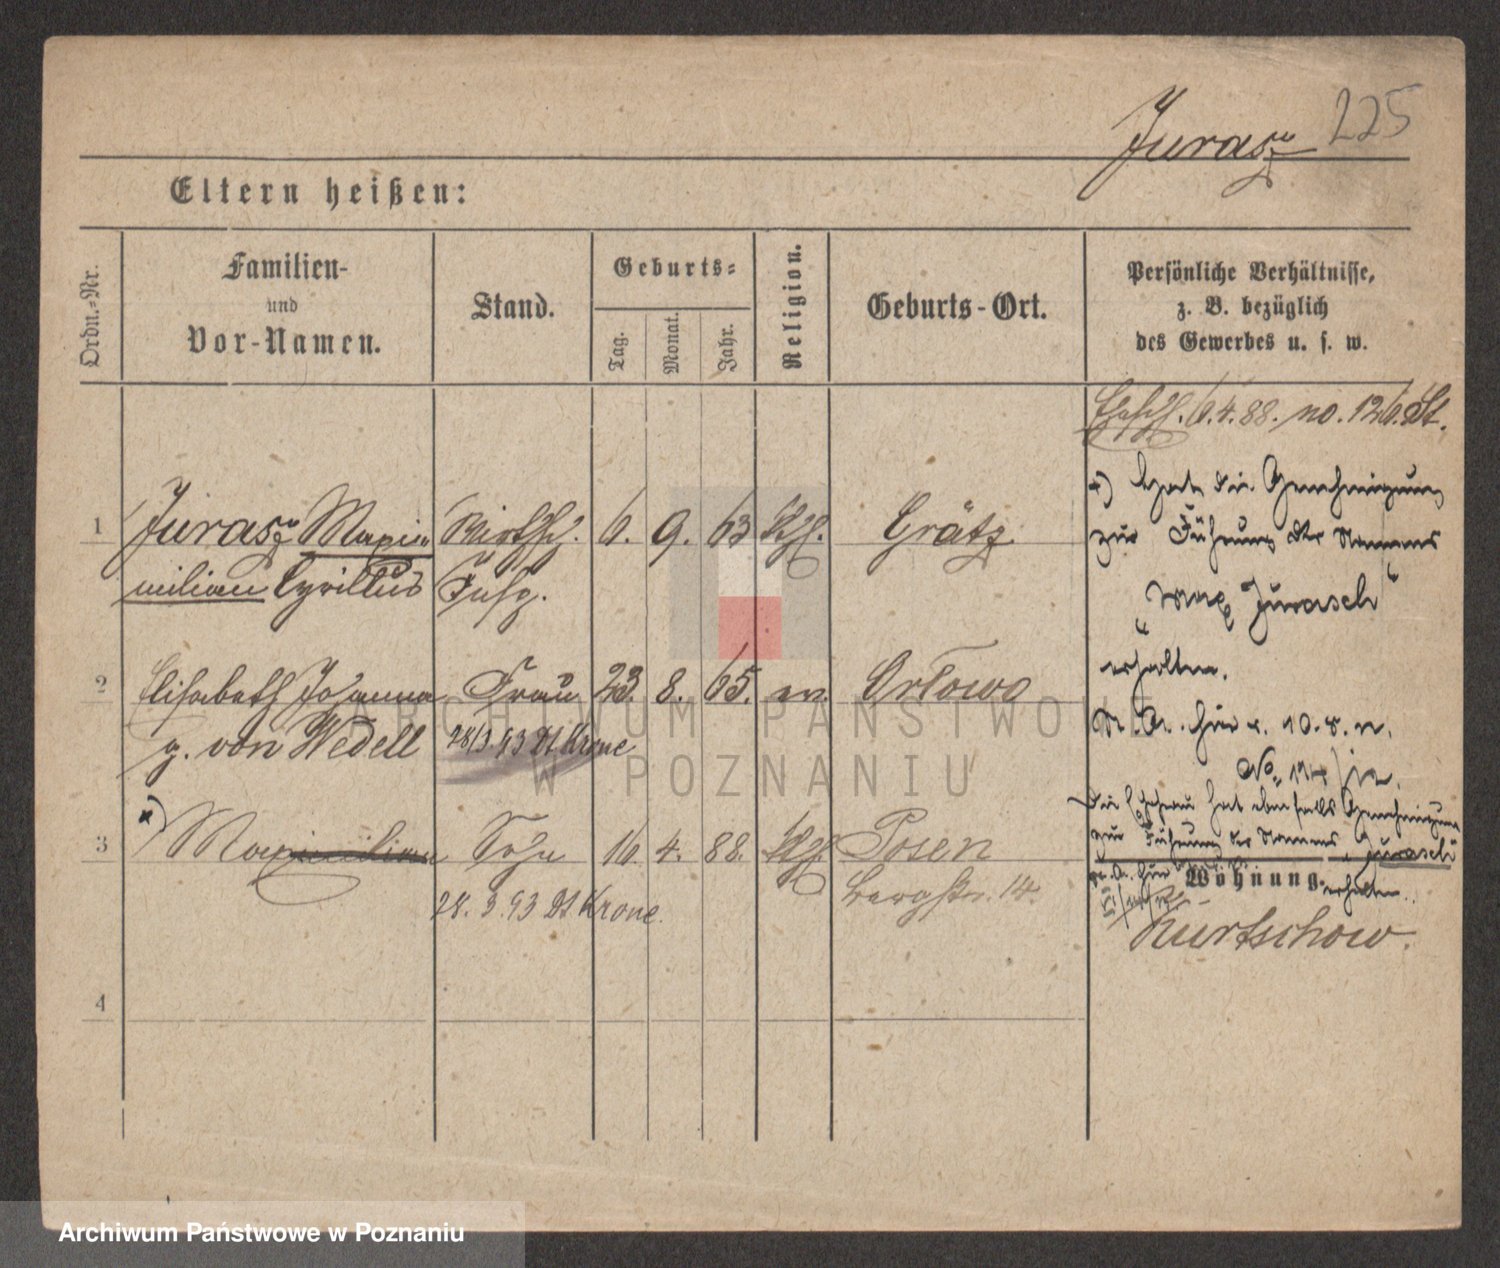 Jurasz 225
Eltern heißen:
Ordn.-Nr.
Familien-
und
Vor-Namen.
Stand.
Geburts-
Tag.
Monat.
Jahr.
Religion.
Geburts-Ort.
Persönliche Verhältnisse,
z. B. bezüglich
des Gewerbes u. s. w.
Ehschl. 6.4.88. no. 126. St.
1 Jurasz Maximilian Cyrillus Wirthsch. Insp. 6. 9. 63 kth. Grätz
2 Elisabeth Johanna Frau 23. 8. 65. ev. Orlowo
g. von Wedell 28/3.93 Dt Krone
3 x) Maximilian Sohn 16 4. 88. kth. Posen
28. 3. 93 Dt Krone. Bergstr. 14.
4
x) Hat die Genehmigung
zur Führung des Namens
"Max Jurasch"
erhalten.
die Ehefrau hat ebenfalls Genehmigung
zur Führung des Namens "Jurasch"
erhalten.
Wohnung.
Kurtschow.
ARCHIWUM PAŃSTWOWE
W POZNANIU
Archiwum Państwowe w Poznaniu